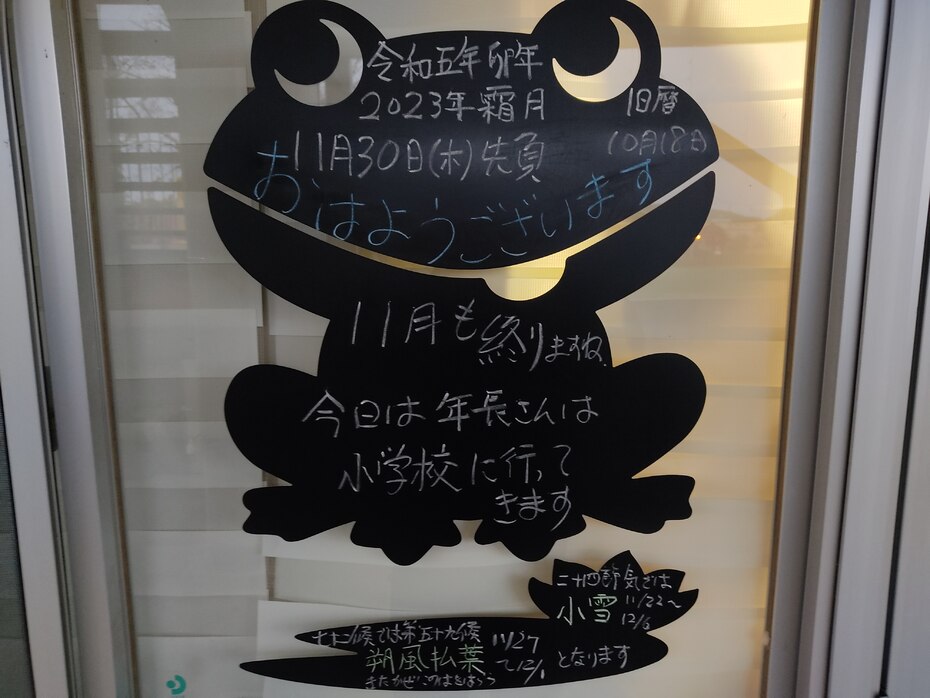 令和五年 卯年
2023年 霜月
旧暦
10月18日
11月30日(木)先負
おはようございます
11月も終りますね
今日は年長さんは
小学校に行って
きます
二十四節気では
小雪 11/22〜
12/6
七十二候では第五十九候
朔風払葉
11/27
〜12/1
となります
きたかぜこのはをはらう